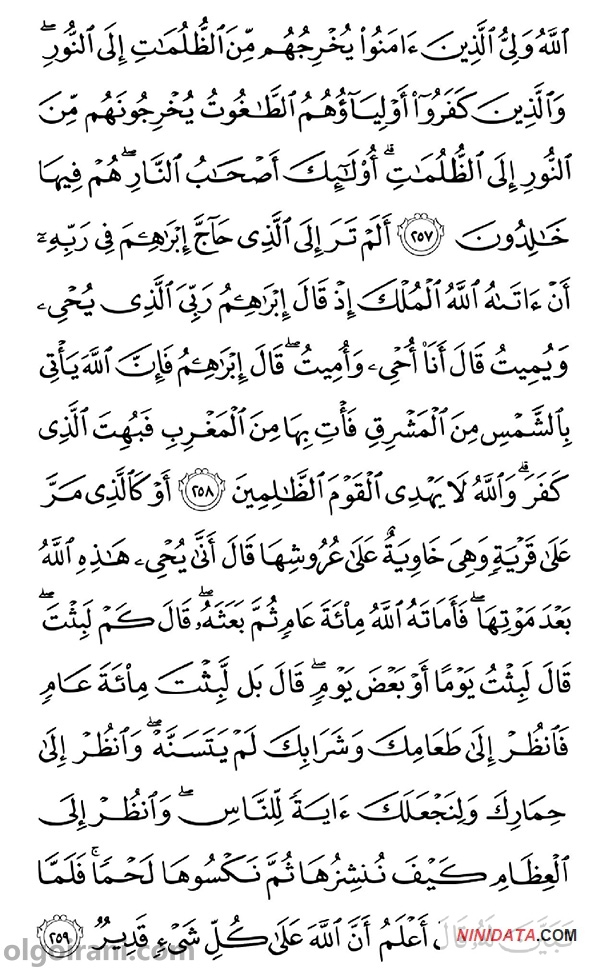 ٱللَّهُ وَلِىُّ ٱلَّذِينَ ءَامَنُوا۟ يُخْرِجُهُم مِّنَ ٱلظُّلُمَـٰتِ إِلَى ٱلنُّورِ ۖ
وَٱلَّذِينَ كَفَرُوٓا۟ أَوْلِيَآؤُهُمُ ٱلطَّـٰغُوتُ يُخْرِجُونَهُم مِّنَ
ٱلنُّورِ إِلَى ٱلظُّلُمَـٰتِ ۗ أُو۟لَـٰٓئِكَ أَصْحَـٰبُ ٱلنَّارِ ۖ هُمْ فِيهَا
خَـٰلِدُونَ ٢٥٧ أَلَمْ تَرَ إِلَى ٱلَّذِى حَآجَّ إِبْرَٰهِـۧمَ فِى رَبِّهِۦٓ
أَنْ ءَاتَىٰهُ ٱللَّهُ ٱلْمُلْكَ إِذْ قَالَ إِبْرَٰهِـۧمُ رَبِّىَ ٱلَّذِى يُحْىِۦ
وَيُمِيتُ قَالَ أَنَا۠ أُحْىِۦ وَأُمِيتُ ۖ قَالَ إِبْرَٰهِـۧمُ فَإِنَّ ٱللَّهَ يَأْتِى
بِٱلشَّمْسِ مِنَ ٱلْمَشْرِقِ فَأْتِ بِهَا مِنَ ٱلْمَغْرِبِ فَبُهِتَ ٱلَّذِى
كَفَرَ ۗ وَٱللَّهُ لَا يَهْدِى ٱلْقَوْمَ ٱلظَّـٰلِمِينَ ٢٥٨ أَوْ كَٱلَّذِى مَرَّ
عَلَىٰ قَرْيَةٍ وَهِىَ خَاوِيَةٌ عَلَىٰ عُرُوشِهَا قَالَ أَنَّىٰ يُحْىِۦ هَـٰذِهِ ٱللَّهُ
بَعْدَ مَوْتِهَا ۖ فَأَمَاتَهُ ٱللَّهُ مِا۟ئَةَ عَامٍ ثُمَّ بَعَثَهُۥ ۖ قَالَ كَمْ لَبِثْتَ ۖ
قَالَ لَبِثْتُ يَوْمًا أَوْ بَعْضَ يَوْمٍ ۖ قَالَ بَل لَّبِثْتَ مِا۟ئَةَ عَامٍ
فَٱنظُرْ إِلَىٰ طَعَامِكَ وَشَرَابِكَ لَمْ يَتَسَنَّهْ ۖ وَٱنظُرْ إِلَىٰ
حِمَارِكَ وَلِنَجْعَلَكَ ءَايَةً لِّلنَّاسِ ۖ وَٱنظُرْ إِلَى
ٱلْعِظَامِ كَيْفَ نُنشِزُهَا ثُمَّ نَكْسُوهَا لَحْمًا ۚ فَلَمَّا
أَعْلَمُ أَنَّ ٱللَّهَ عَلَىٰ كُلِّ شَىْءٍ قَدِيرٌ ٢٥٩
NINIDATA.COM
olgoirani.com